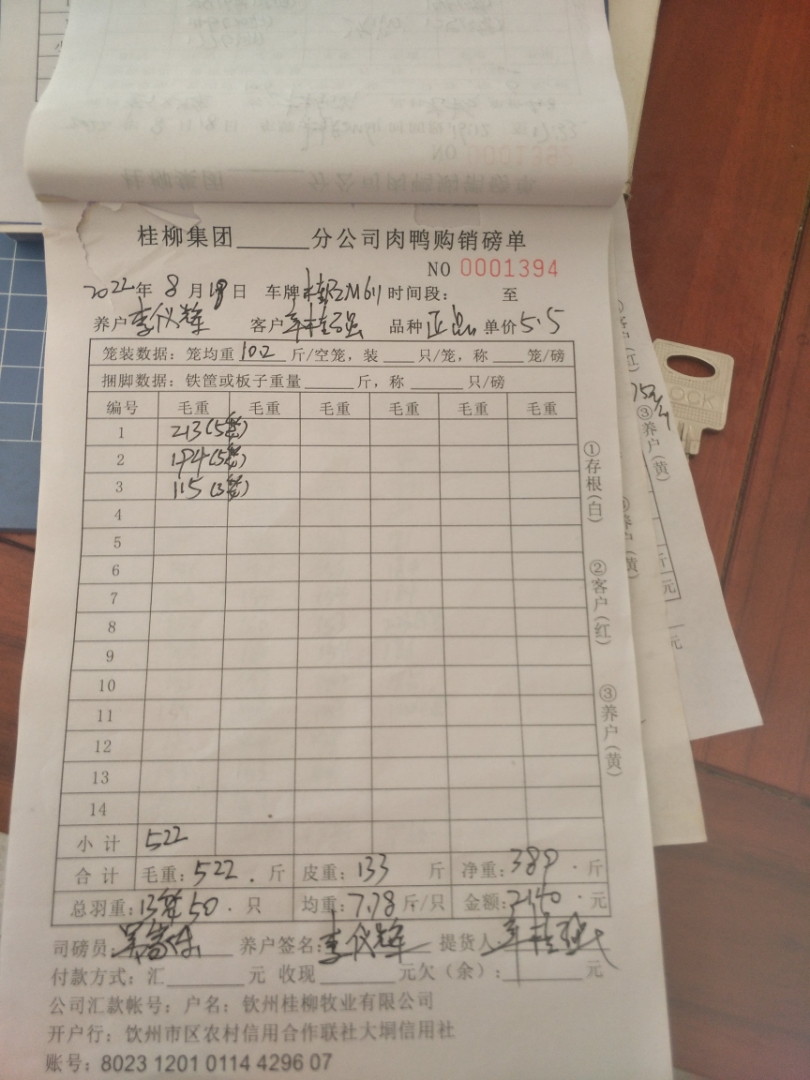 NO 0001392
桂柳集团______分公司肉鸭购销磅单
NO 0001394
2022年 8 月 日 车牌 时间段: 至
养户李仪辉 客户 品种正出 单价5.5
笼装数据: 笼均重 斤/空笼, 装___只/笼, 称___笼/磅
捆脚数据: 铁筐或板子重量______斤, 称______只/磅
编号 毛重 毛重 毛重 毛重 毛重 毛重
1 213(5笼)
2 194(5笼)
3 115(3笼)
4
5
6
7
8
9
10
11
12
13
14
小计 522
合计 毛重:522.斤 皮重:133 斤 净重:389.斤
总羽重:13笼50.只 均重:7.78斤/只 金额:2140.元
司磅员: 养户签名:李仪辉 提货人:
付款方式: 汇______元 收现______元欠(余):______元
公司汇款帐号: 户名: 钦州桂柳牧业有限公司
开户行: 钦州市区农村信用合作联社大垌信用社
账号: 8023 1201 0114 4296 07
①存根(白)
②客户(红)
③养户(黄)
客户(红)
③养户(黄)
元
元